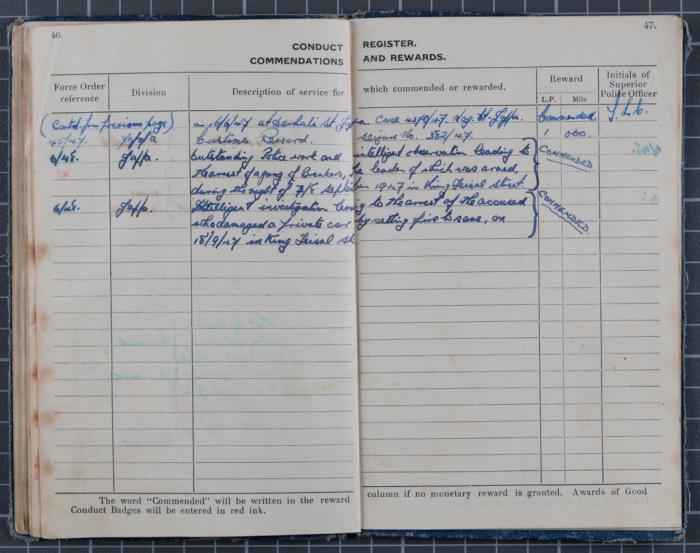 46.
47.
CONDUCT REGISTER.
COMMENDATIONS AND REWARDS.
Force Order reference
Division
Description of service for which commended or rewarded.
Reward
L.P. Mils
Initials of Superior Police Officer
(Contd. from previous page) 16/6/47 at St. Jaffa Case Jaffa. Commended.
Jaffa Customs Reward. seizure No. 382/47. 1 000.
6/48. Jaffa. Outstanding Police work and intelligent observation leading to COMMENDED
the arrest of a gang of Breakers, the leader of which was armed,
during the night of 7/8 September 1947 in King Feisal street
6/48. Jaffa. Intelligent investigation leading to the arrest of the accused COMMENDED.
who damaged a private car by setting fire to same, on
18/9/47 in King Feisal st.
The word "Commended" will be written in the reward column if no monetary reward is granted. Awards of Good
Conduct Badges will be entered in red ink.